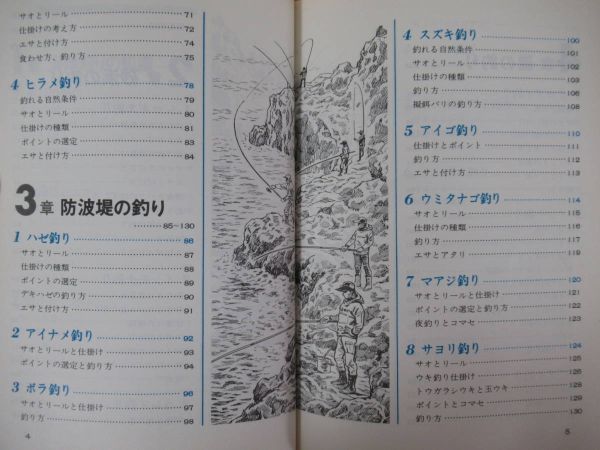 サオとリール 71
仕掛けの考え方 72
エサと付け方 74
食わせ方、釣り方 75
4 ヒラメ釣り 78
釣れる自然条件 79
サオとリール 80
仕掛けの種類 81
ポイントの選定 83
エサと付け方 84
3章 防波堤の釣り
85~130
1 ハゼ釣り 86
サオとリール 87
仕掛けの種類 88
ポイントの選定 89
デキハゼの釣り方 90
エサと付け方 91
2 アイナメ釣り 92
サオとリールと仕掛け 93
ポイントの選定と釣り方 94
3 ボラ釣り 96
サオとリールと仕掛け 97
釣り方 98
4
4 スズキ釣り 100
釣れる自然条件 101
サオとリール 102
仕掛けの種類 103
釣り方 106
擬餌バリの釣り方 108
5 アイゴ釣り 110
仕掛けとポイント 111
釣り方 112
エサと付け方 113
6 ウミタナゴ釣り 114
サオとリール 115
仕掛けの種類 116
釣り方 117
エサとアタリ 119
7 マアジ釣り 120
サオとリールと仕掛け 121
ポイントの選定と釣り方 122
夜釣りとコマセ 123
8 サヨリ釣り 124
サオとリール 125
ウキ釣り仕掛け 126
トウガラシウキと玉ウキ 128
ポイントとコマセ 128
釣り方 130
5